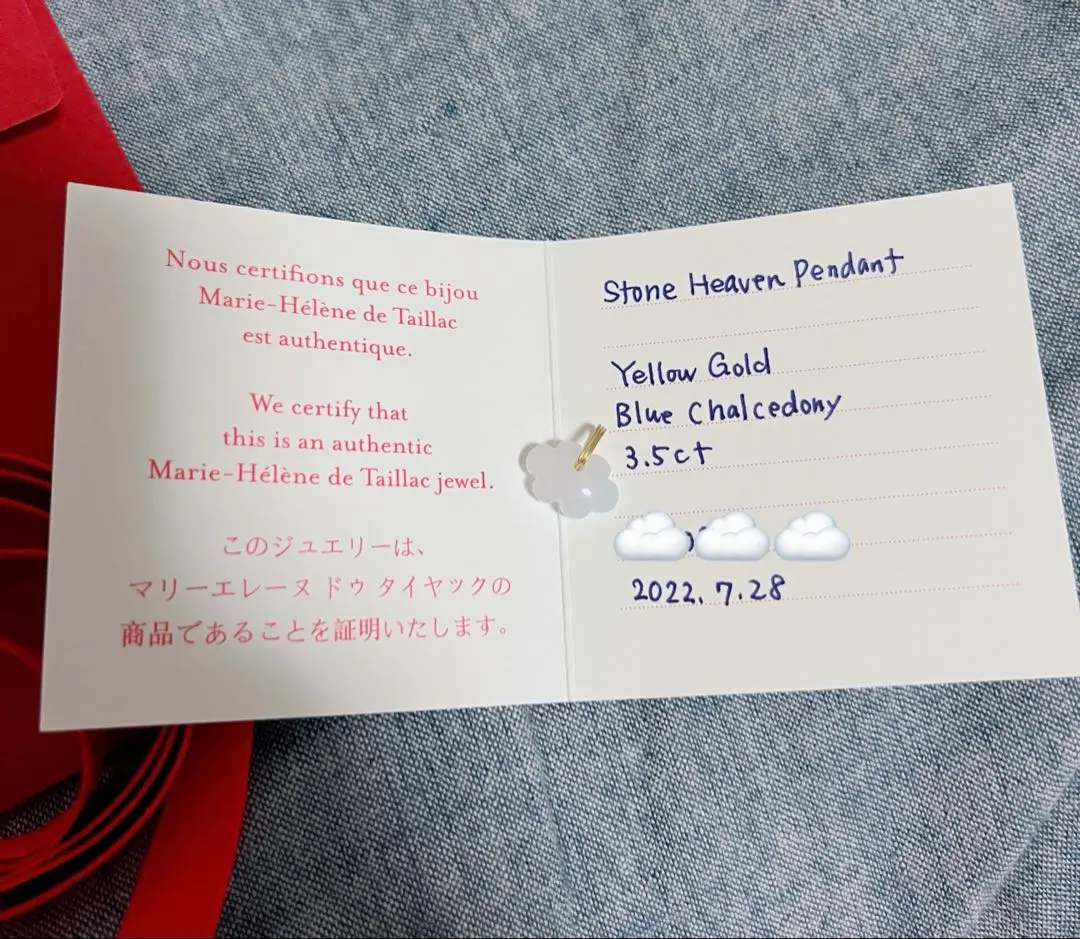 Nous certifions que ce bijou
Marie-Hélène de Taillac
est authentique.
We certify that
this is an authentic
Marie-Hélène de Taillac jewel.
このジュエリーは、
マリーエレーヌ ドゥ タイヤックの
商品であることを証明いたします。
Stone Heaven Pendant
Yellow Gold
Blue Chalcedony
3.5ct
2022. 7.28